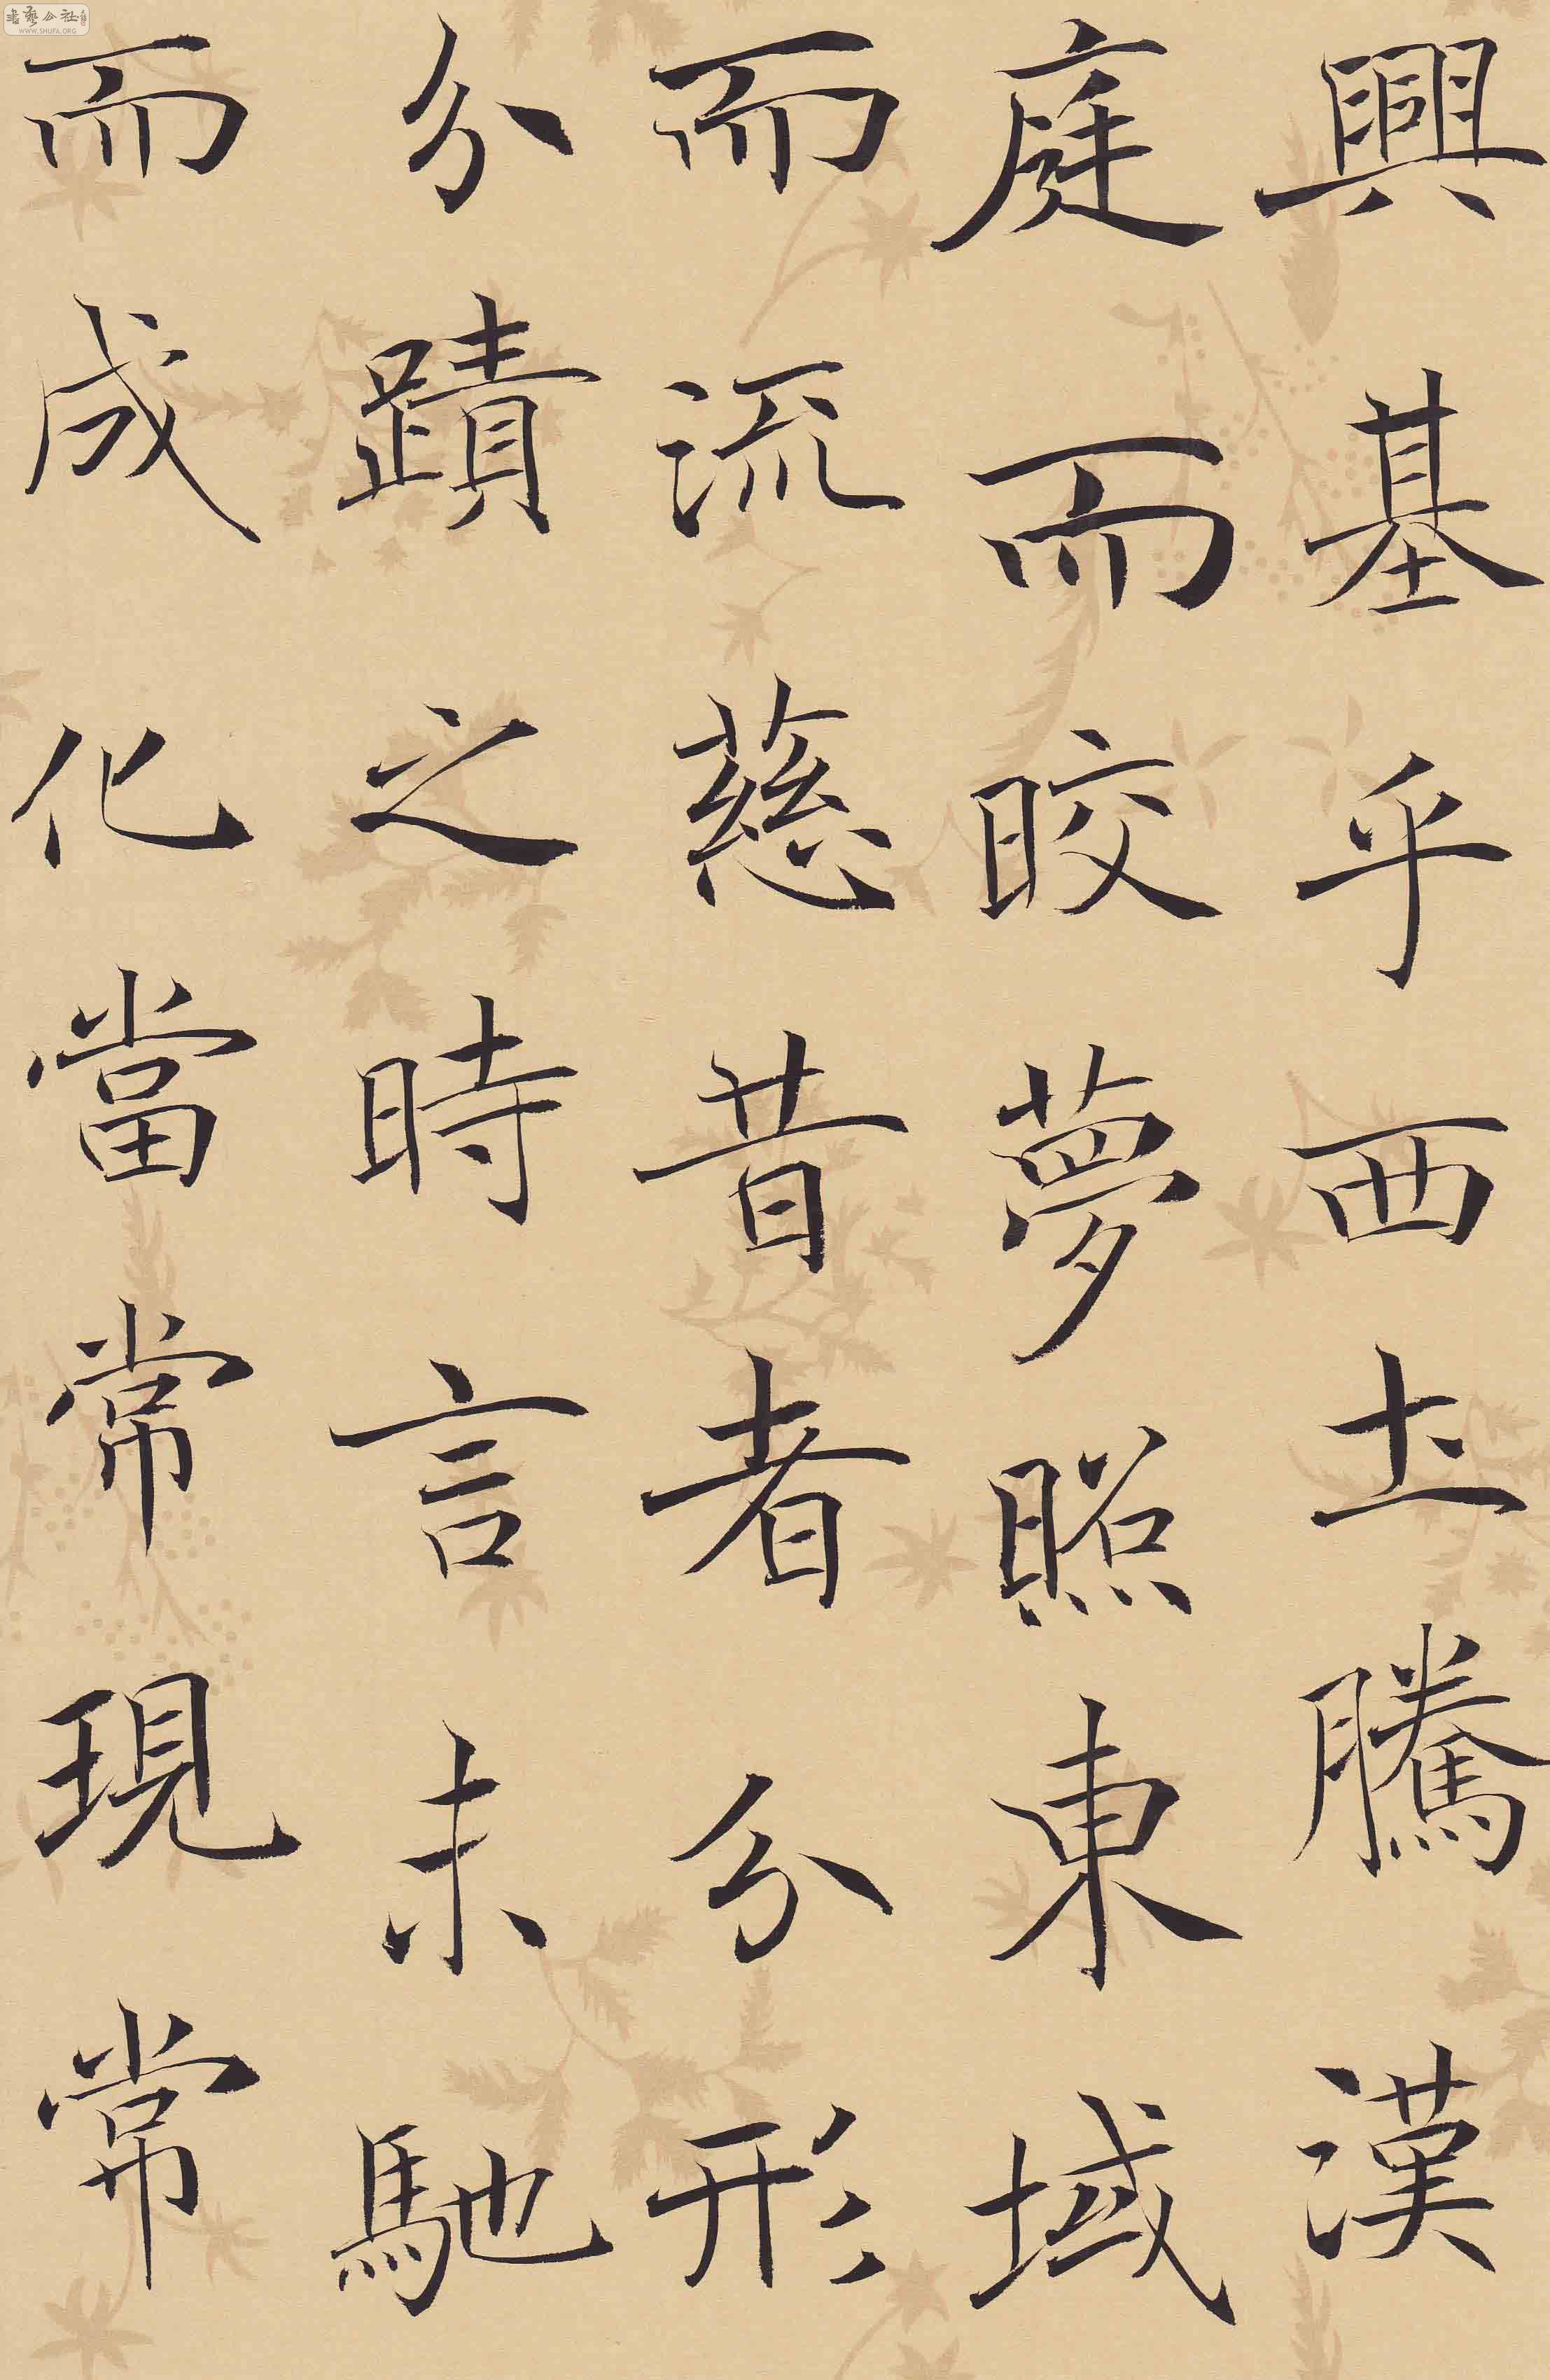 興基乎西土騰漢
庭而晈夢照東域
而流慈昔者分形
分蹟之時言未馳
而成化當常現常
書藝公社
WWW.SHUFA.ORG